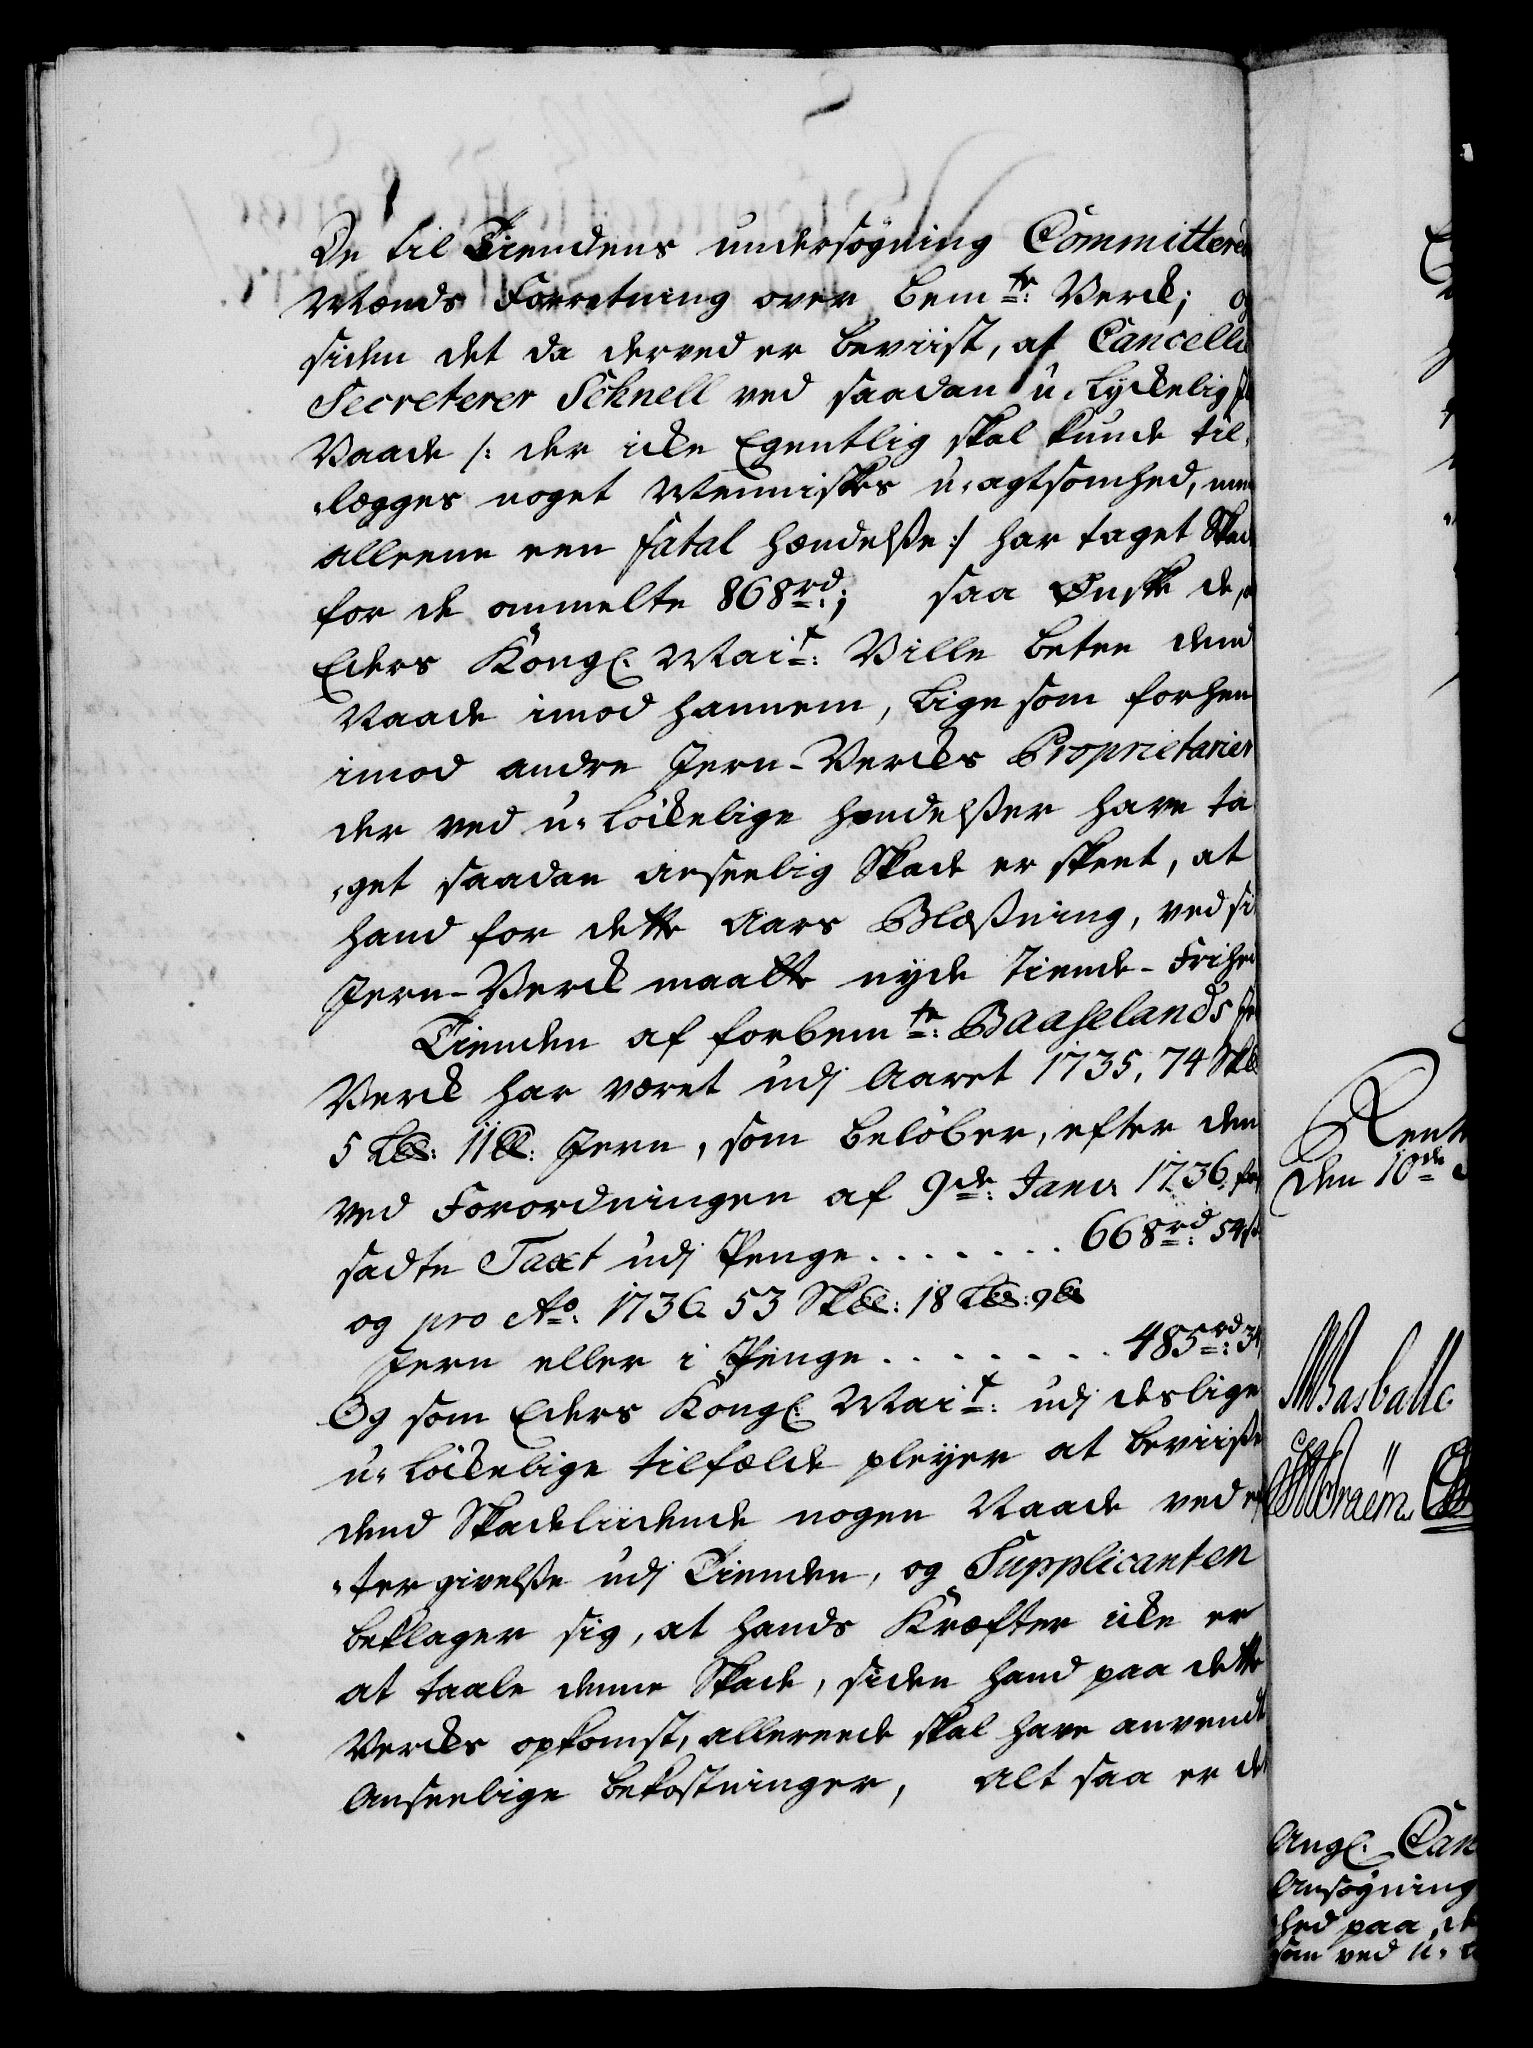 De til Tiendens undersøgning Committere
Mænds Forretning over bem.te: Verck; og
siden det da derved er beviist, at Cancellie
Secreterer Schnell ved saadan u-Lyckelig
Vaade /: der icke Egentlig skal kunde til-
-lægges noget Menniskes u-agtsomhed, men
alleene een fatal hændelße :/ har taget Skade
for de anmelte 868 rd.; saa Ønske de,
Eders Kongl. Mai.t: Ville betee dend
Naade imod hannem, Lige som forhen
imod andre Jern-Vercks Proprietarier
der ved u-Løckelige hendelßer have ta
-get saadan anseelig Skade er skeet, at
hand for dette Aars Blæßning, ved si
Jern-Verck maatte nyde Tiende-Frihed
Tienden af forbem.te: Baaselands
Verck har været udj Aaret 1735, 74 Sk℔
5 L℔: 11 ℔: Jern, som beløber, efter den
ved Forordningen af 9de: Janv: 1736 for
sadte Taxt udj Penge . . . . . . . 668 rd: 54
og pro Ao: 1736 53 Sk℔: 18 L℔: 9 ℔
Jern eller i Penge . . . . . . . 485 rd: 34
Og som Eders Kongl. Mai.t: udj deslige
u-Løckelige tilfælde pleyer at beviiße
dend Skadeliidende nogen Naade ved ef
-tergivelße udj Tienden, og Supplicanten
beklager sig, at hands Kræfter icke er
at taale denne Skade, siden hand paa dette
Vercks opkomst, allereede skal have anvendt
Anseelige bekostninger, Alt saa er de
Rent
den 10de
Basballe
Fraem
Angl. Can
Ansøgning
hed paa
som ved u-